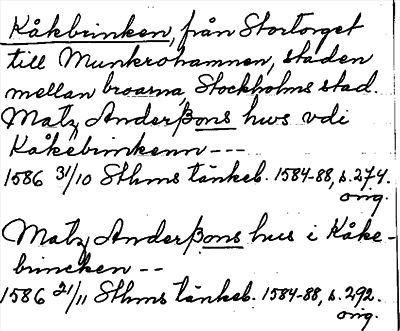 Kåkbrinken, från Stortorget
till Munkrohamnen, staden
mellan broarna, Stockholms stad.
Matz Anderßons hws vdi
Kåkebrinkenn ---
1586 31/10 Sthms tänkeb. 1584-88, s. 274.
orig.
Matz Anderßons hus i Kåke-
brincken --
1586 21/11 Sthms tänkeb. 1584-88, s. 292.
orig.